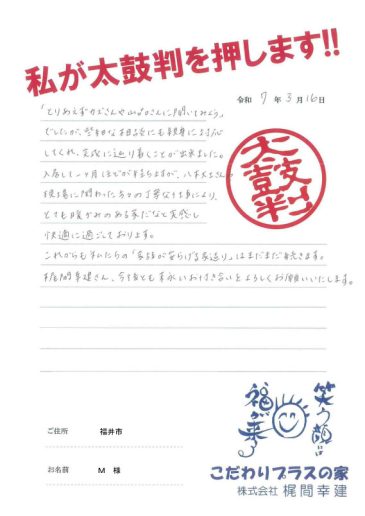 私が太鼓判を押します!!
令和 7 年 3 月 16 日
「とりあえずカズさんや山口さんに聞いてみよう」
でしたが、些細な相談にも親身に対応
してくれ、完成に辿り着くことが出来ました。
入居して一ヶ月ほどが経ちますが、
現場に関わった方々の丁寧な仕事により、
とても暖かみのある家だなと実感し
快適に過ごしております。
これからも私たちの「家族が安らげる家造り」はまだまだ続きます。
梶間幸建さん、今後とも末永いお付き合いをよろしくお願いいたします。
太鼓判
ご住所 福井市
お名前 M 様
笑う顔には
福が来る
こだわりプラスの家
株式会社 梶間幸建